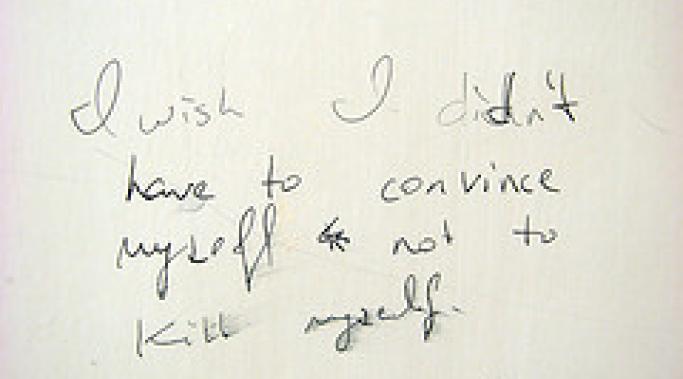 I wish I didn't
have to convince
myself not to
kill myself.